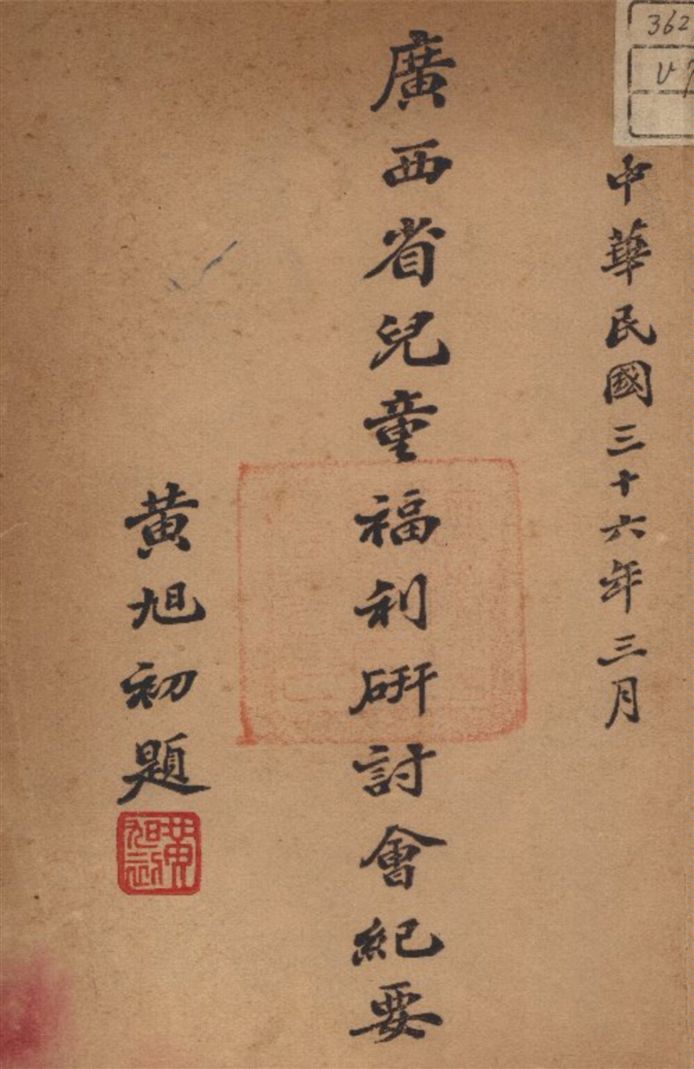 362
中華民國三十六年三月
廣西省兒童福利研討會紀要
黄旭初題
黃旭初